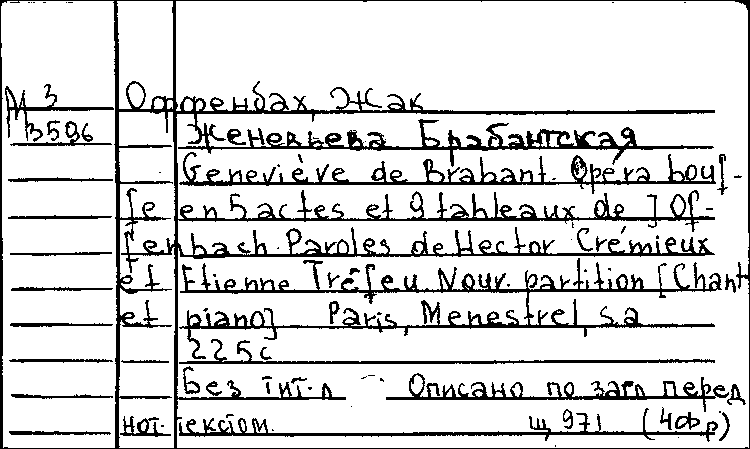 М 3
3596
Оффенбах, Жак
Женевьева Брабантская
Geneviève de Brabant. Opéra bouf-
fe en 5 actes et 9 tableaux de J Of-
fenbach. Paroles de Hector Crémieux
et Etienne Tréfeu Nouv. partition [Chant
et piano] Paris, Menestrel, s.a
225 с
Без тит. л Описано по загл перед
нот. текстом. щ 971 (40ф р)